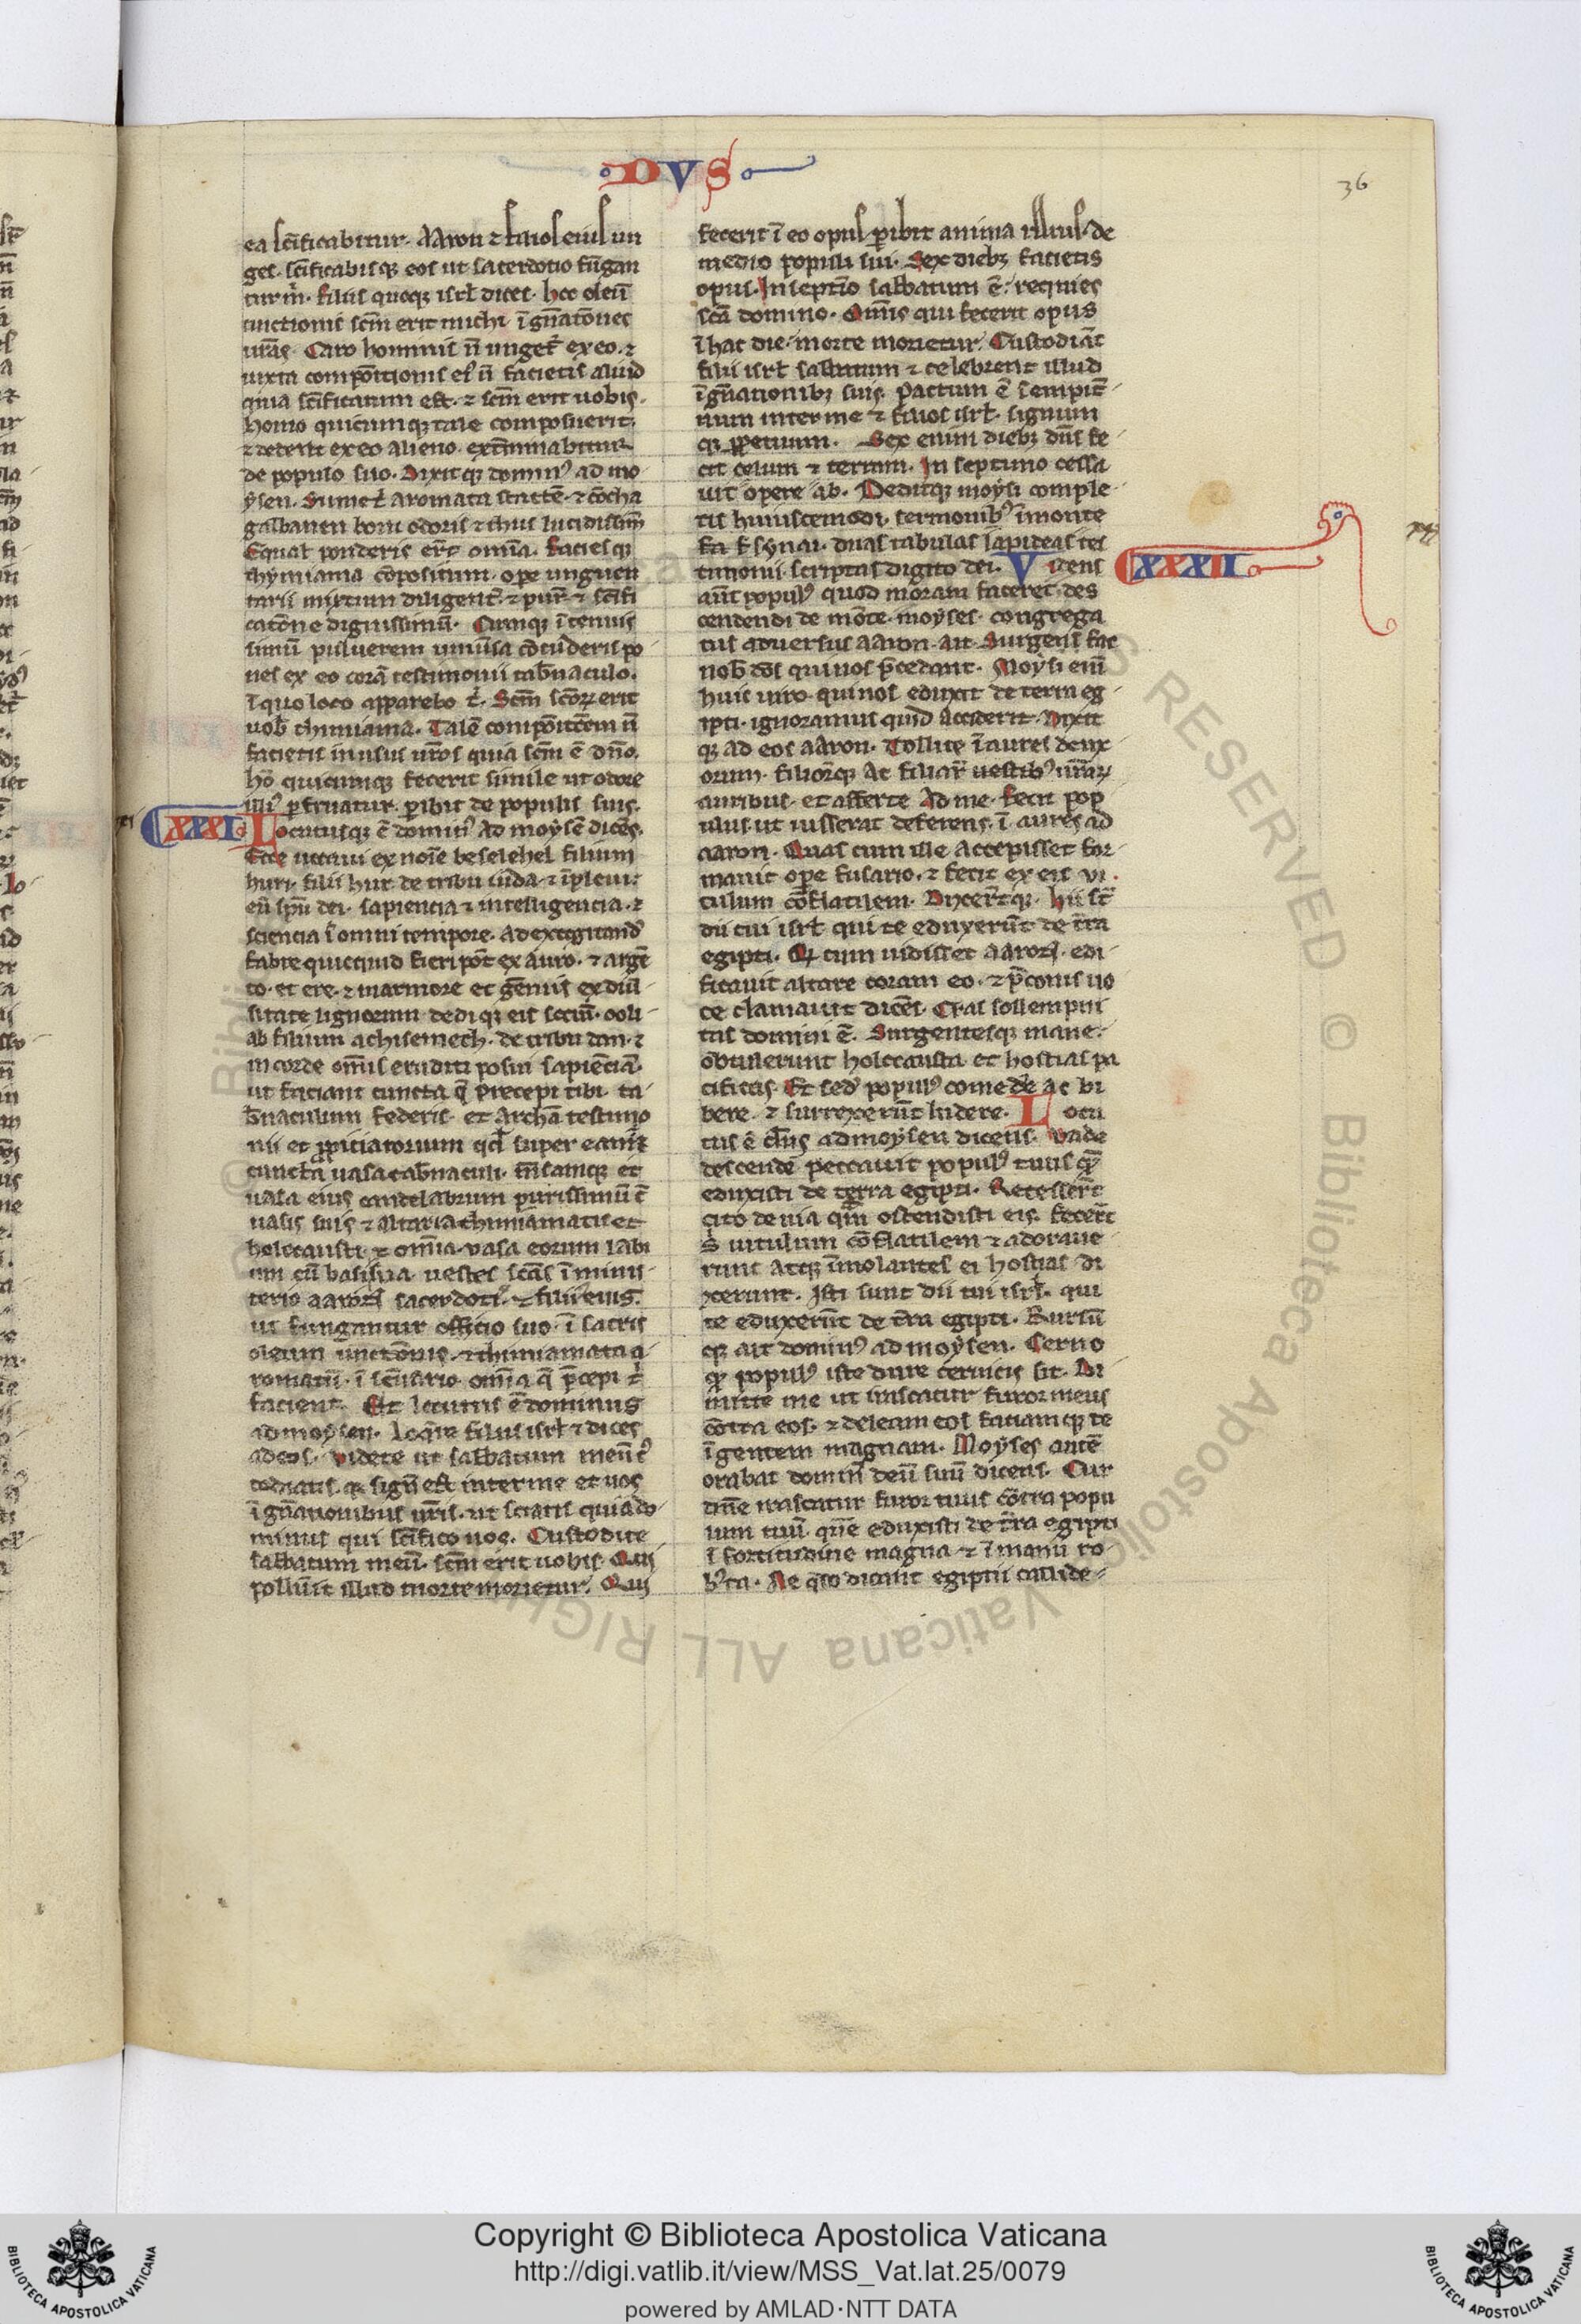 DVS
36
ea sc̄ificabitur. Aaron ⁊ filios eius un
ges. sc̄ificabisqꝫ eos ut sacerdotio fūgan
tur m̄. filiis quoqꝫ isrł dices. hoc oleū
unctionis sc̄m erit michi ī gn̄atōnes
ur̄as. Caro hominis n̄ unget̄ ex eo. ⁊
iuxta compōitionis ei' n̄ facietis aliud
quia sc̄ificatum est. ⁊ sc̄m erit uobis.
homo quicumqꝫ tale composuerit.
⁊ dederit ex eo alieno. ext̄minabitur
de populo suo. Dixitqꝫ domin' ad mo
ysen. Sume t̄ aromata stactē. ⁊ ōicha
galbanen boni odoris ⁊ thus lucidissim̄
Equal' ponderis er̄t omīa. faciesqꝫ
thymiama cōpositum. ope unguen
tarii mixtum diligent̄. ⁊ pur̄ ⁊ sc̄ifi
catōne dignissimū. Cumqꝫ ī tenuis
simū puluerem uniūsa cōtuderis po
nes ex eo corā testimonii tab̄naculo.
ī quo loco apparebo t̄. Sc̄m sc̄oꝝ erit
uob̄ thimiama. Talē compōitōem n̄
facietis in usus ur̄os quia sc̄m ē dn̄o.
hō quicumqꝫ fecerit simile ut odore
illi' ꝑfruatur. ꝑibit de populis suis.
XXXI Locutusqꝫ ē domin' ad moysē dicēs.
Ecce uocaui ex noīe beselehel filium
huri. filii hur de tribu iuda. ⁊ īpleui.
eū spū dei. sapiencia ⁊ intelligencia. ⁊
sciencia ī omni tempore. ad excogitand'
fabre quicquid fieri pōt ex auro. ⁊ argē
to. et ere. ⁊ marmore et gēmis ex diū
sitate lignorum dediqꝫ eis sociū. ooli
ab filium achisemech. de tribu dan. ⁊
in corde om̄is eruditi posui sapienciā.
ut faciant cuncta q̄ precepi tibi. ta
b̄naculum federis. et archā testimo
nii et ꝓpiciatorium qd̄ super eam ē
cuncta uasa tab̄naculi. m̄samqꝫ et
uasa eius candelabrum purissimū c̄
uasis suis ⁊ altaria thimiamatis et
holocausti. ⁊ om̄ia uasa eorum labi
um cū basi sua. uestes sc̄as ī minis
terio aaron sacerdoti. ⁊ filiis eius.
ut fungantur officio suo. ī sacris
oleum unctōnis. ⁊ thimiamata a
romatū. ī sc̄uario. om̄ia q̄ p̄cepi t̄
facient. Et locutus ē dominus
ad moysen. loqūe filiis isrł ⁊ dices
ad eos. videte ut sabbatum meū c'
todiatis. qꝫ signū est inter me et uos
ī gn̄ationibus ur̄is. ut sciatis quia do
minus qui sc̄ifico uos. Custodite
sabbatum meū. sc̄m erit uobis. Qui
polluīt illud morte morietur. Qui
fecerit ī eo opus. ꝑibit anima illius. de
medio populi sui. Sex diebꝫ facietis
opus. In septīo sabbatum ē. requies
sc̄a domino. Om̄is qui fecerit opus
ī hac die. morte morietur. Custodiāt
filii isrł sabbatum ⁊ celebrent illud
ī gn̄ationibꝫ suis. Pactum ē sempit̄
num inter me ⁊ filios isrł. signum
qꝫ ꝑpetuum. Sex enim diebꝫ dn̄s fe
cit celum ⁊ terram. In septimo cessa
uit opere ab. Deditqꝫ moysi comple
tis huiuscemodi. sermonib' ī monte
synai. duas tabulas lapideas tes
timonii. scriptas digito dei. Videns XXXII
aūt popul' quod moram faceret. des
cendendi de mōte. moyses. congrega
tus aduersus aaron. ait. Surgens fac
nob̄ d̄os qui nos p̄cedant. Moysi enī
huic uiro. qui nos eduxit de terra eg
ipti. ignoramus quid acciderit. Dixit
qꝫ ad eos aaron. Tollite ī aures deux
orum. filiorūqꝫ ac filiaꝝ uestib' ur̄aꝝ
auribus. et afferte ad me. fecit pop
ulus. ut iusserat deferens. ī aures ad
aaron. Quas cum ille accepisset for
mauit oꝑe fusario. ⁊ fecit ex eis vi
tulum cōflatilem. Dixer̄tqꝫ. hii st̄
dii tui isrł qui te eduxerūt de t̄ra
egipti. Qd̄ cum uidisset aaron. edi
ficauit altare coram eo. ⁊ p̄conis uo
ce clamauit dicēs. Cras sollempni
tas domini ē. Surgentesqꝫ mane.
obtulerunt holocausta et hostias pa
cificas. Et sed' popul' comede ac bi
bere. ⁊ surrexerūt ludere. Locu
tus ē dn̄s ad moysen dicens. vade
descende peccauit popul' tuus quē
eduxisti de terra egipti. Recesser̄t
cito de uia qm̄ ostendisti eis. fecer̄t
s' uitulum cōflatilem ⁊ adoraue
runt atqꝫ īmolantes ei hostias di
xerunt. Isti sunt dii tui isrł. qui
te eduxerūt de t̄ra egipti. Rursū
qꝫ ait domin' ad moysen. Cerno
qꝫ popul' iste dure ceruicis sit. Di
mitte me ut irascatur furor meus
cōtra eos. ⁊ deleam eos faciamqꝫ te
ī gentem magnam. Moyses autē
orabat domin̄ deū suū dicens. Cur
dn̄e irascatur furor tuus cōtra popu
lum tuū. quē eduxisti de t̄ra egipti
ī fortitudine magna ⁊ ī manu ro
b'ta. Ne q̄so dicant egiptii callide
Copyright © Biblioteca Apostolica Vaticana
http://digi.vatlib.it/view/MSS_Vat.lat.25/0079
powered by AMLAD·NTT DATA
BIBLIOTECA APOSTOLICA VATICANA
BIBLIOTECA APOSTOLICA VATICANA